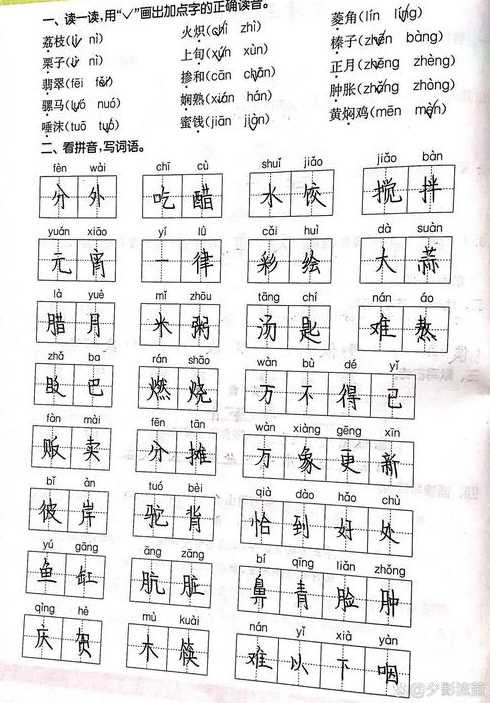 一、读一读,用“✓”画出加点字的正确读音。
荔枝(lì nì) 火炽(chì zhì) 菱角(lín líng)
栗子(lì nì) 上旬(xún xùn) 榛子(zhēn bàng)
翡翠(fēi fěi) 掺和(cān chān) 正月(zhēng zhèng)
骡马(luó nuó) 娴熟(xián hán) 肿胀(zhǒng zhāng)
唾沫(tuō tuò) 蜜饯(jiān jiàn) 黄焖鸡(mēn mèn)
二、看拼音,写词语。
fèn wài chī cù shuǐ jiǎo jiǎo bàn
分外 吃醋 水饺 搅拌
yuán xiāo yí lǜ cǎi huì dà suàn
元宵 一律 彩绘 大蒜
là yuè mǐ zhōu tāng chí nán áo
腊月 米粥 汤匙 难熬
zhǎ ba rán shāo wàn bù dé yǐ
眨巴 燃烧 万不得已
fàn mài fēn tān wàn xiàng gēng xīn
贩卖 分摊 万象更新
bǐ àn tuó bèi qià dào hǎo chù
彼岸 驼背 恰到好处
yú gāng āng zāng bí qīng liǎn zhǒng
鱼缸 肮脏 鼻青脸肿
qìng hè mù kuài nán yǐ xià yàn
庆贺 木筷 难以下咽